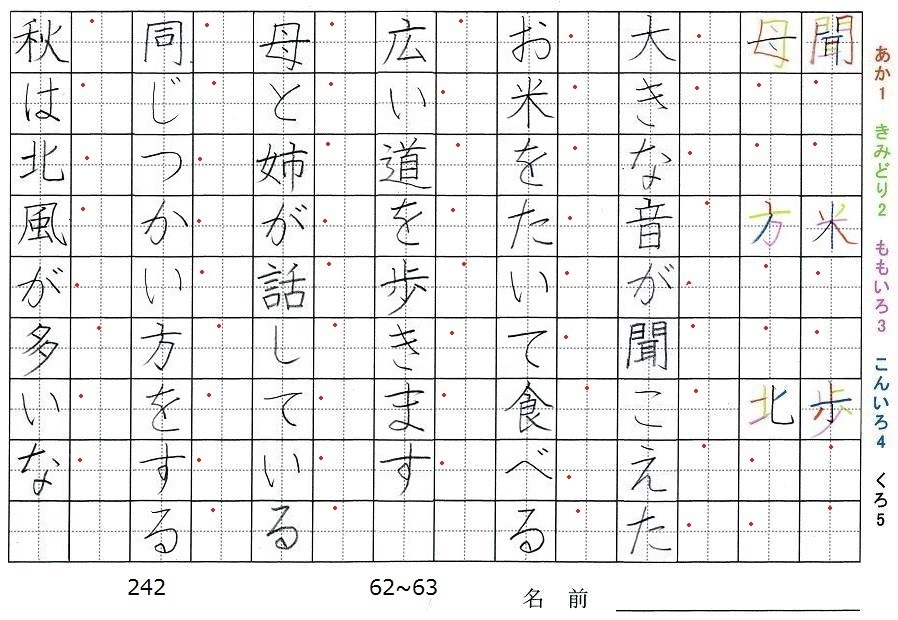 あか1 きみどり2 ももいろ3 こんいろ4 くろ5
聞 米 歩
母 方 北
大きな音が聞こえた
お米をたいて食べる
広い道を歩きます
母と姉が話している
同じつかい方をする
秋は北風が多いな
242 62~63 名前